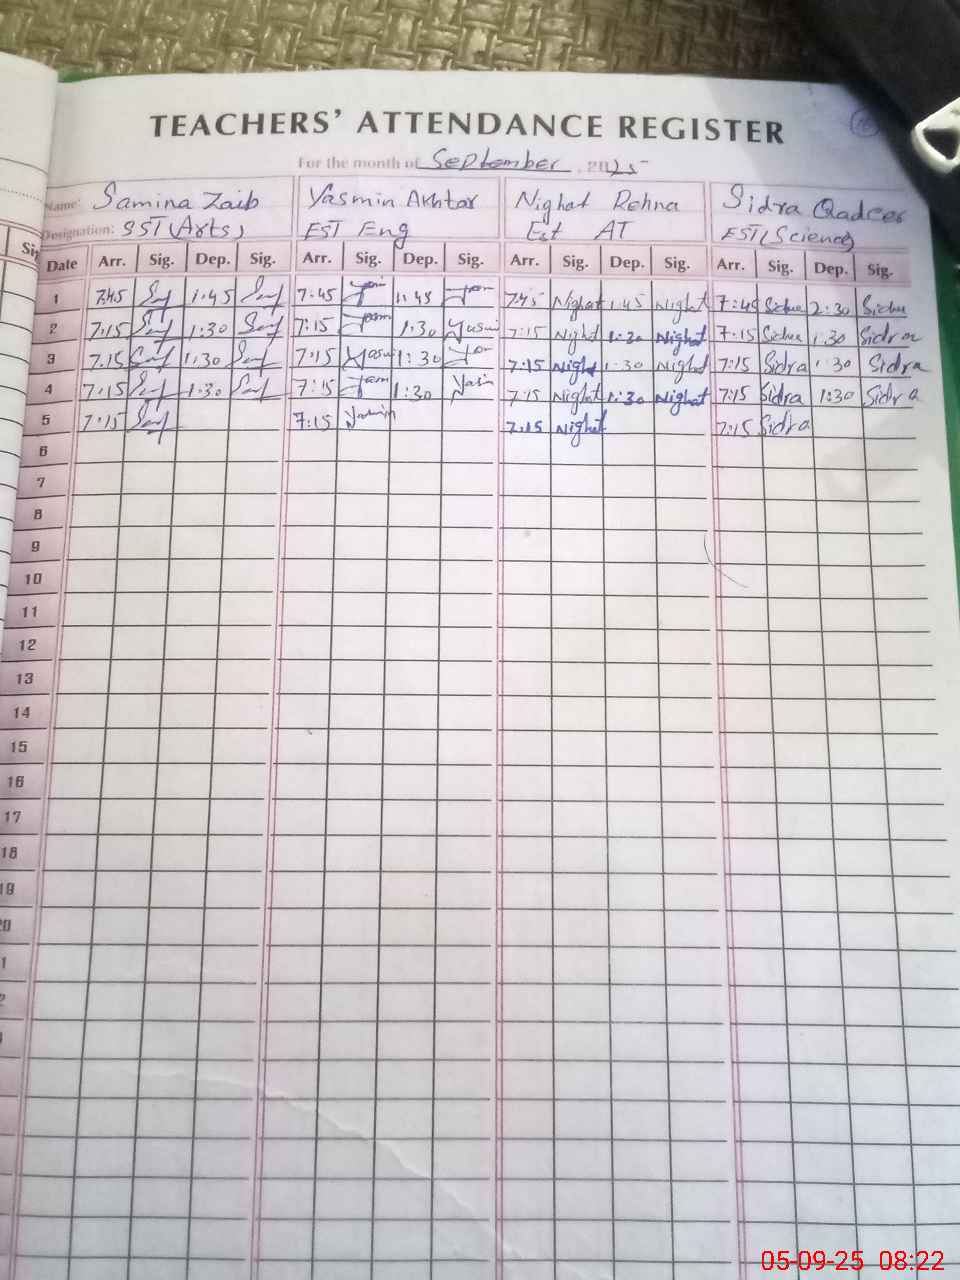 TEACHERS' ATTENDANCE REGISTER
For the month of September, 2025
Name: Samina Zaib Yasmin Akhtar Nighat Rehna Sidra Qadeer
Designation: SST (Arts) EST Eng Est AT EST (Science)
Sig
Date Arr. Sig. Dep. Sig. Arr. Sig. Dep. Sig. Arr. Sig. Dep. Sig. Arr. Sig. Dep. Sig.
1 7:45 1:45 7:45 1:45 7:45 Nighat 1:45 Nighat 7:45 2:30
2 7:15 1:30 7:15 1:30 7:15 Nighat 1:30 Nighat 7:15 1:30 Sidra
3 7:15 1:30 7:15 1:30 7:15 Nighat 1:30 Nighat 7:15 Sidra 1:30 Sidra
4 7:15 1:30 7:15 1:30 7:15 Nighat 1:30 Nighat 7:15 Sidra 1:30 Sidra
5 7:15 7:15 Yasmin 7:15 Nighat 7:15 Sidra
6
7
8
9
10
11
12
13
14
15
16
17
18
19
20
1
2
05-09-25 08:22